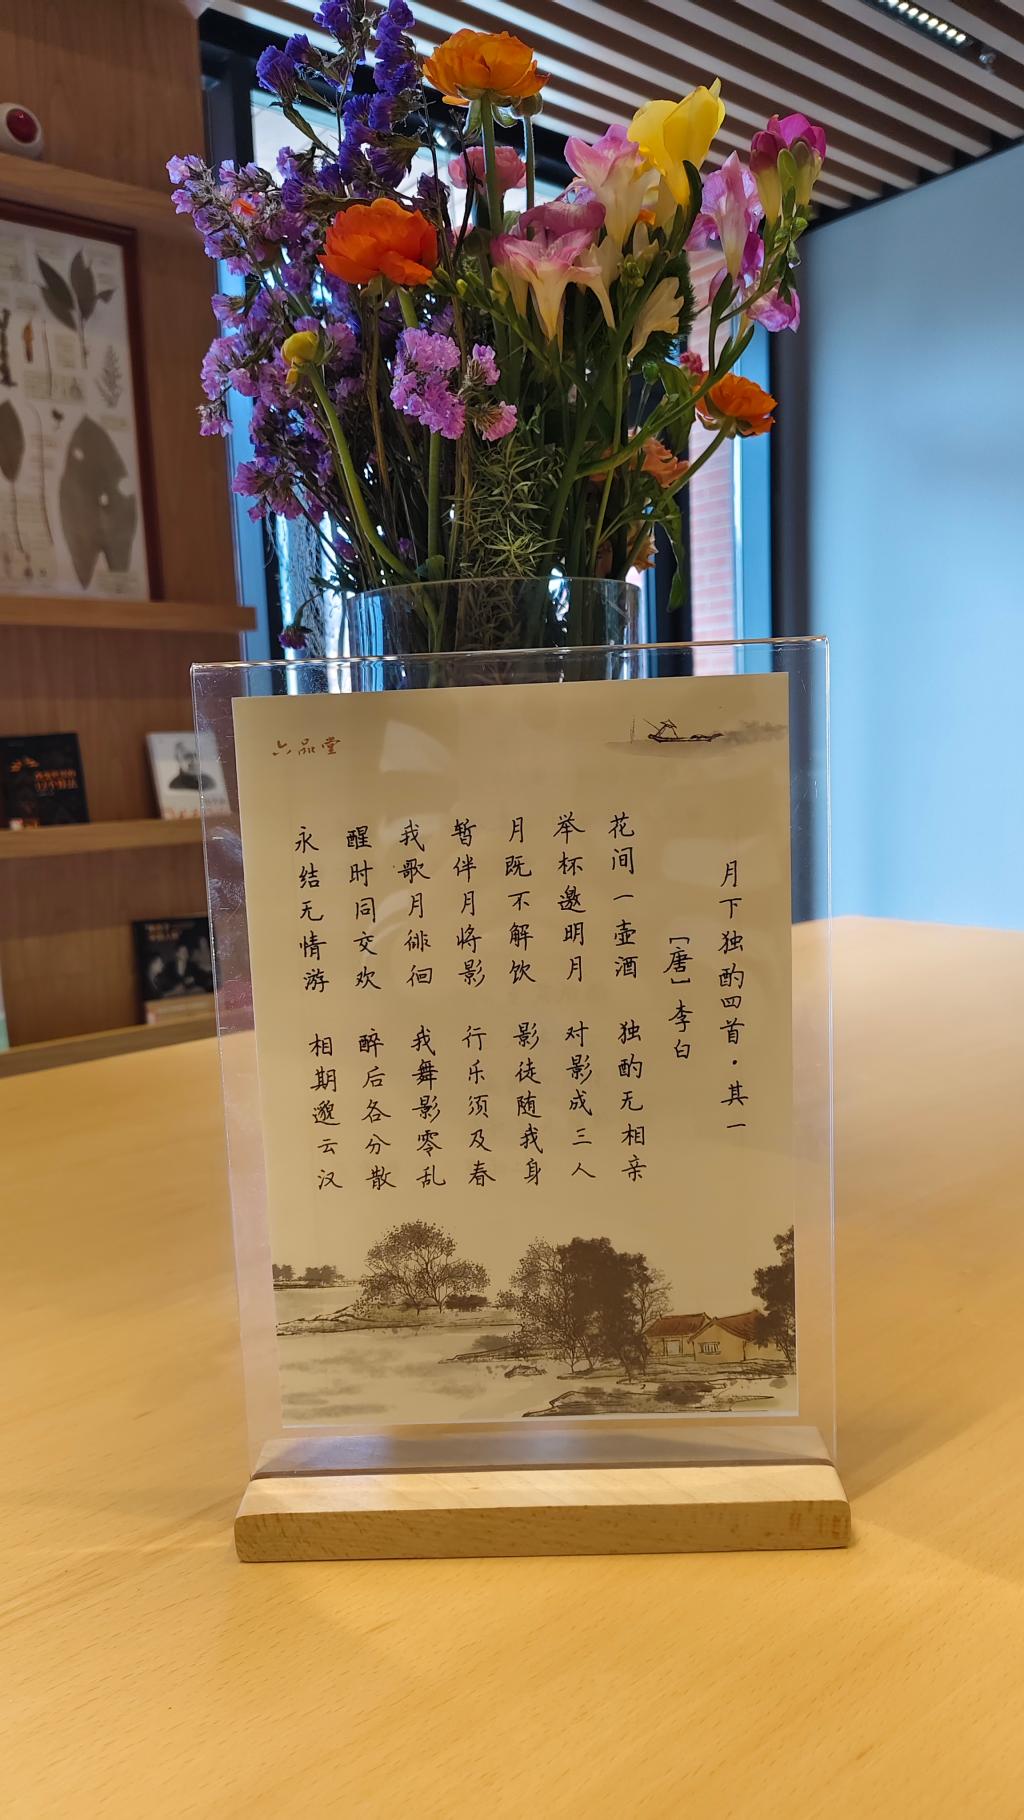 六品堂
月下独酌四首·其一
[唐] 李白
花间一壶酒 独酌无相亲
举杯邀明月 对影成三人
月既不解饮 影徒随我身
暂伴月将影 行乐须及春
我歌月徘徊 我舞影零乱
醒时同交欢 醉后各分散
永结无情游 相期邈云汉